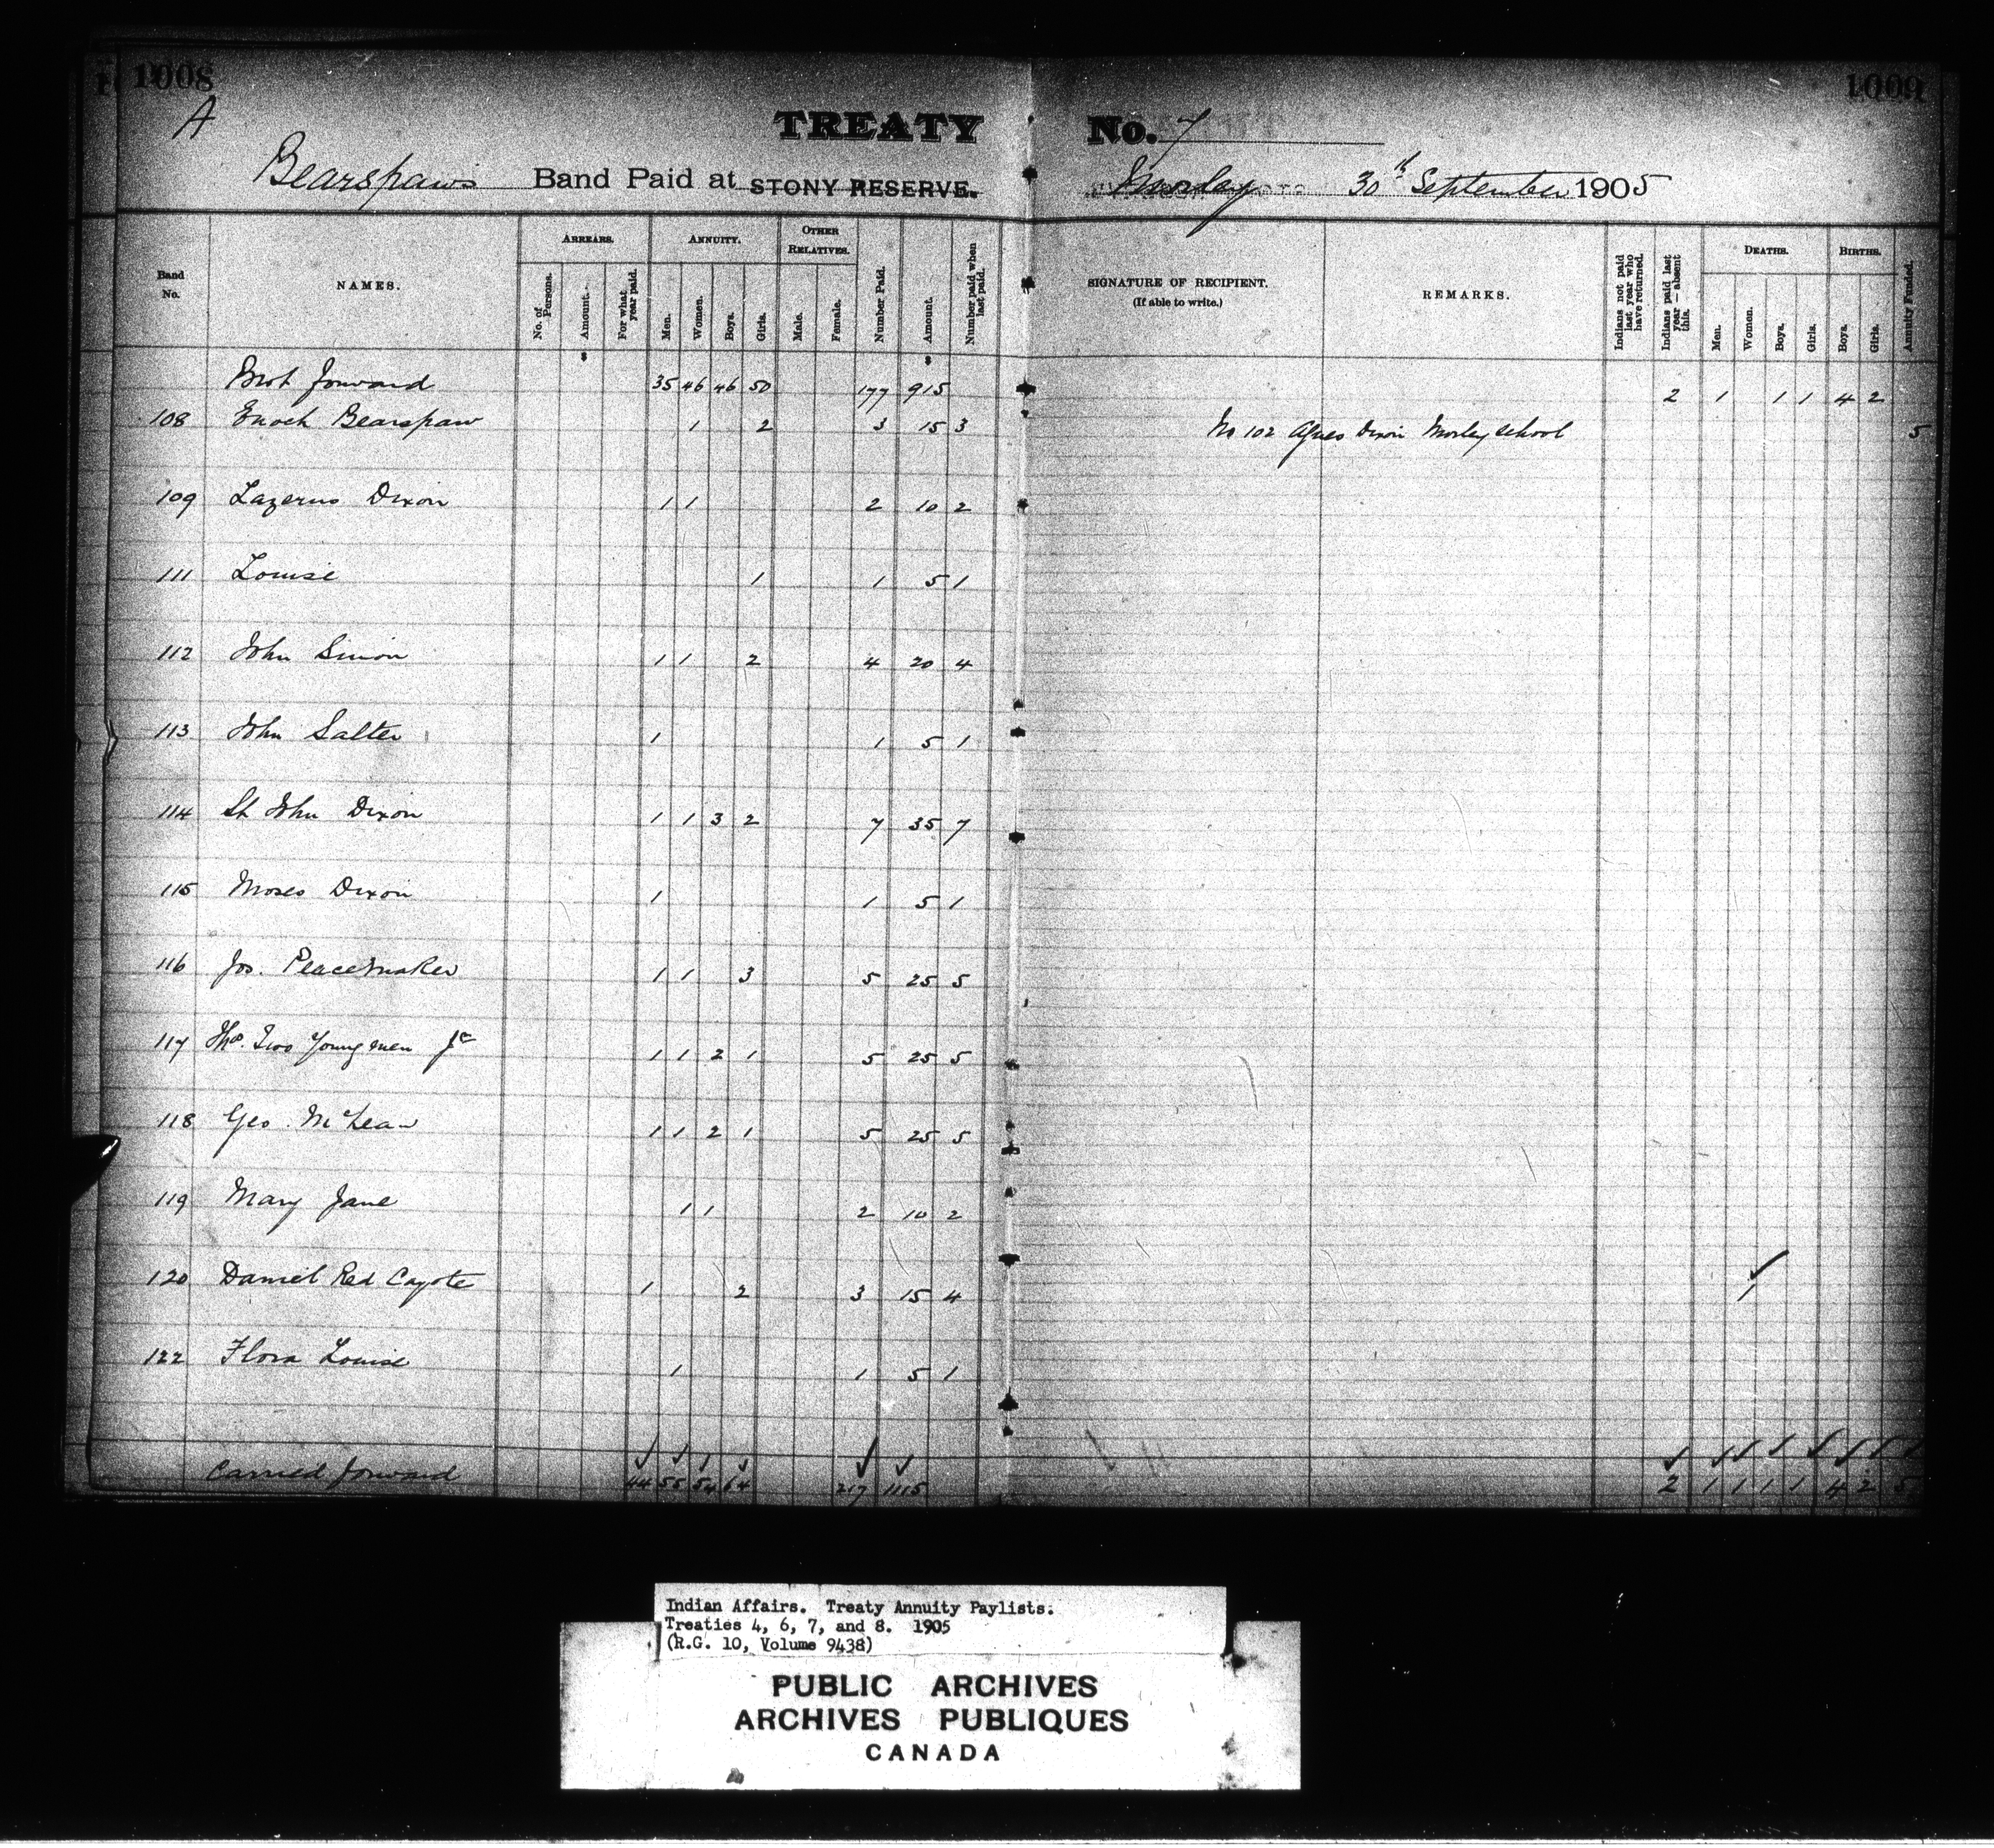 1008
1009
A
TREATY No. 7
Bearspaw's Band Paid at STONY RESERVE. Morley 30th September 1905
Band No.
NAMES.
ARREARS.
No. of Persons.
Amount.
For what year paid.
ANNUITY.
Men.
Women.
Boys.
Girls.
OTHER RELATIVES.
Male.
Female.
Number Paid.
Amount.
Number paid when last paid.
SIGNATURE OF RECIPIENT.
(If able to write.)
REMARKS.
Indians not paid last year who have returned.
Indians paid last year — absent this.
DEATHS.
Men.
Women.
Boys.
Girls.
BIRTHS.
Boys.
Girls.
Annuity Funded.
Brot forward 35 46 46 50 177 915 2 1 1 1 4 2
108 Enoch Bearspaw 1 2 3 15 3 No 102 Agnes Dixon Morley School 5
109 Lazerus Dixon 1 1 2 10 2
111 Louise 1 1 5 1
112 John Simon 1 1 2 4 20 4
113 John Salter 1 1 5 1
114 St John Dixon 1 1 3 2 7 35 7
115 Moses Dixon 1 1 5 1
116 Jos. Peacemaker 1 1 3 5 25 5
117 Thos. Two Youngmen Jr 1 1 2 1 5 25 5
118 Geo. McLean 1 1 2 1 5 25 5
119 Mary Jane 1 1 2 10 2
120 Daniel Red Cayote 1 2 3 15 4 1
122 Flora Louise 1 1 5 1
Carried forward 44 55 54 64 217 1115 2 1 1 1 1 4 2 5
Indian Affairs. Treaty Annuity Paylists.
Treaties 4, 6, 7, and 8. 1905
(R.G. 10, Volume 9438)
PUBLIC ARCHIVES
ARCHIVES PUBLIQUES
CANADA